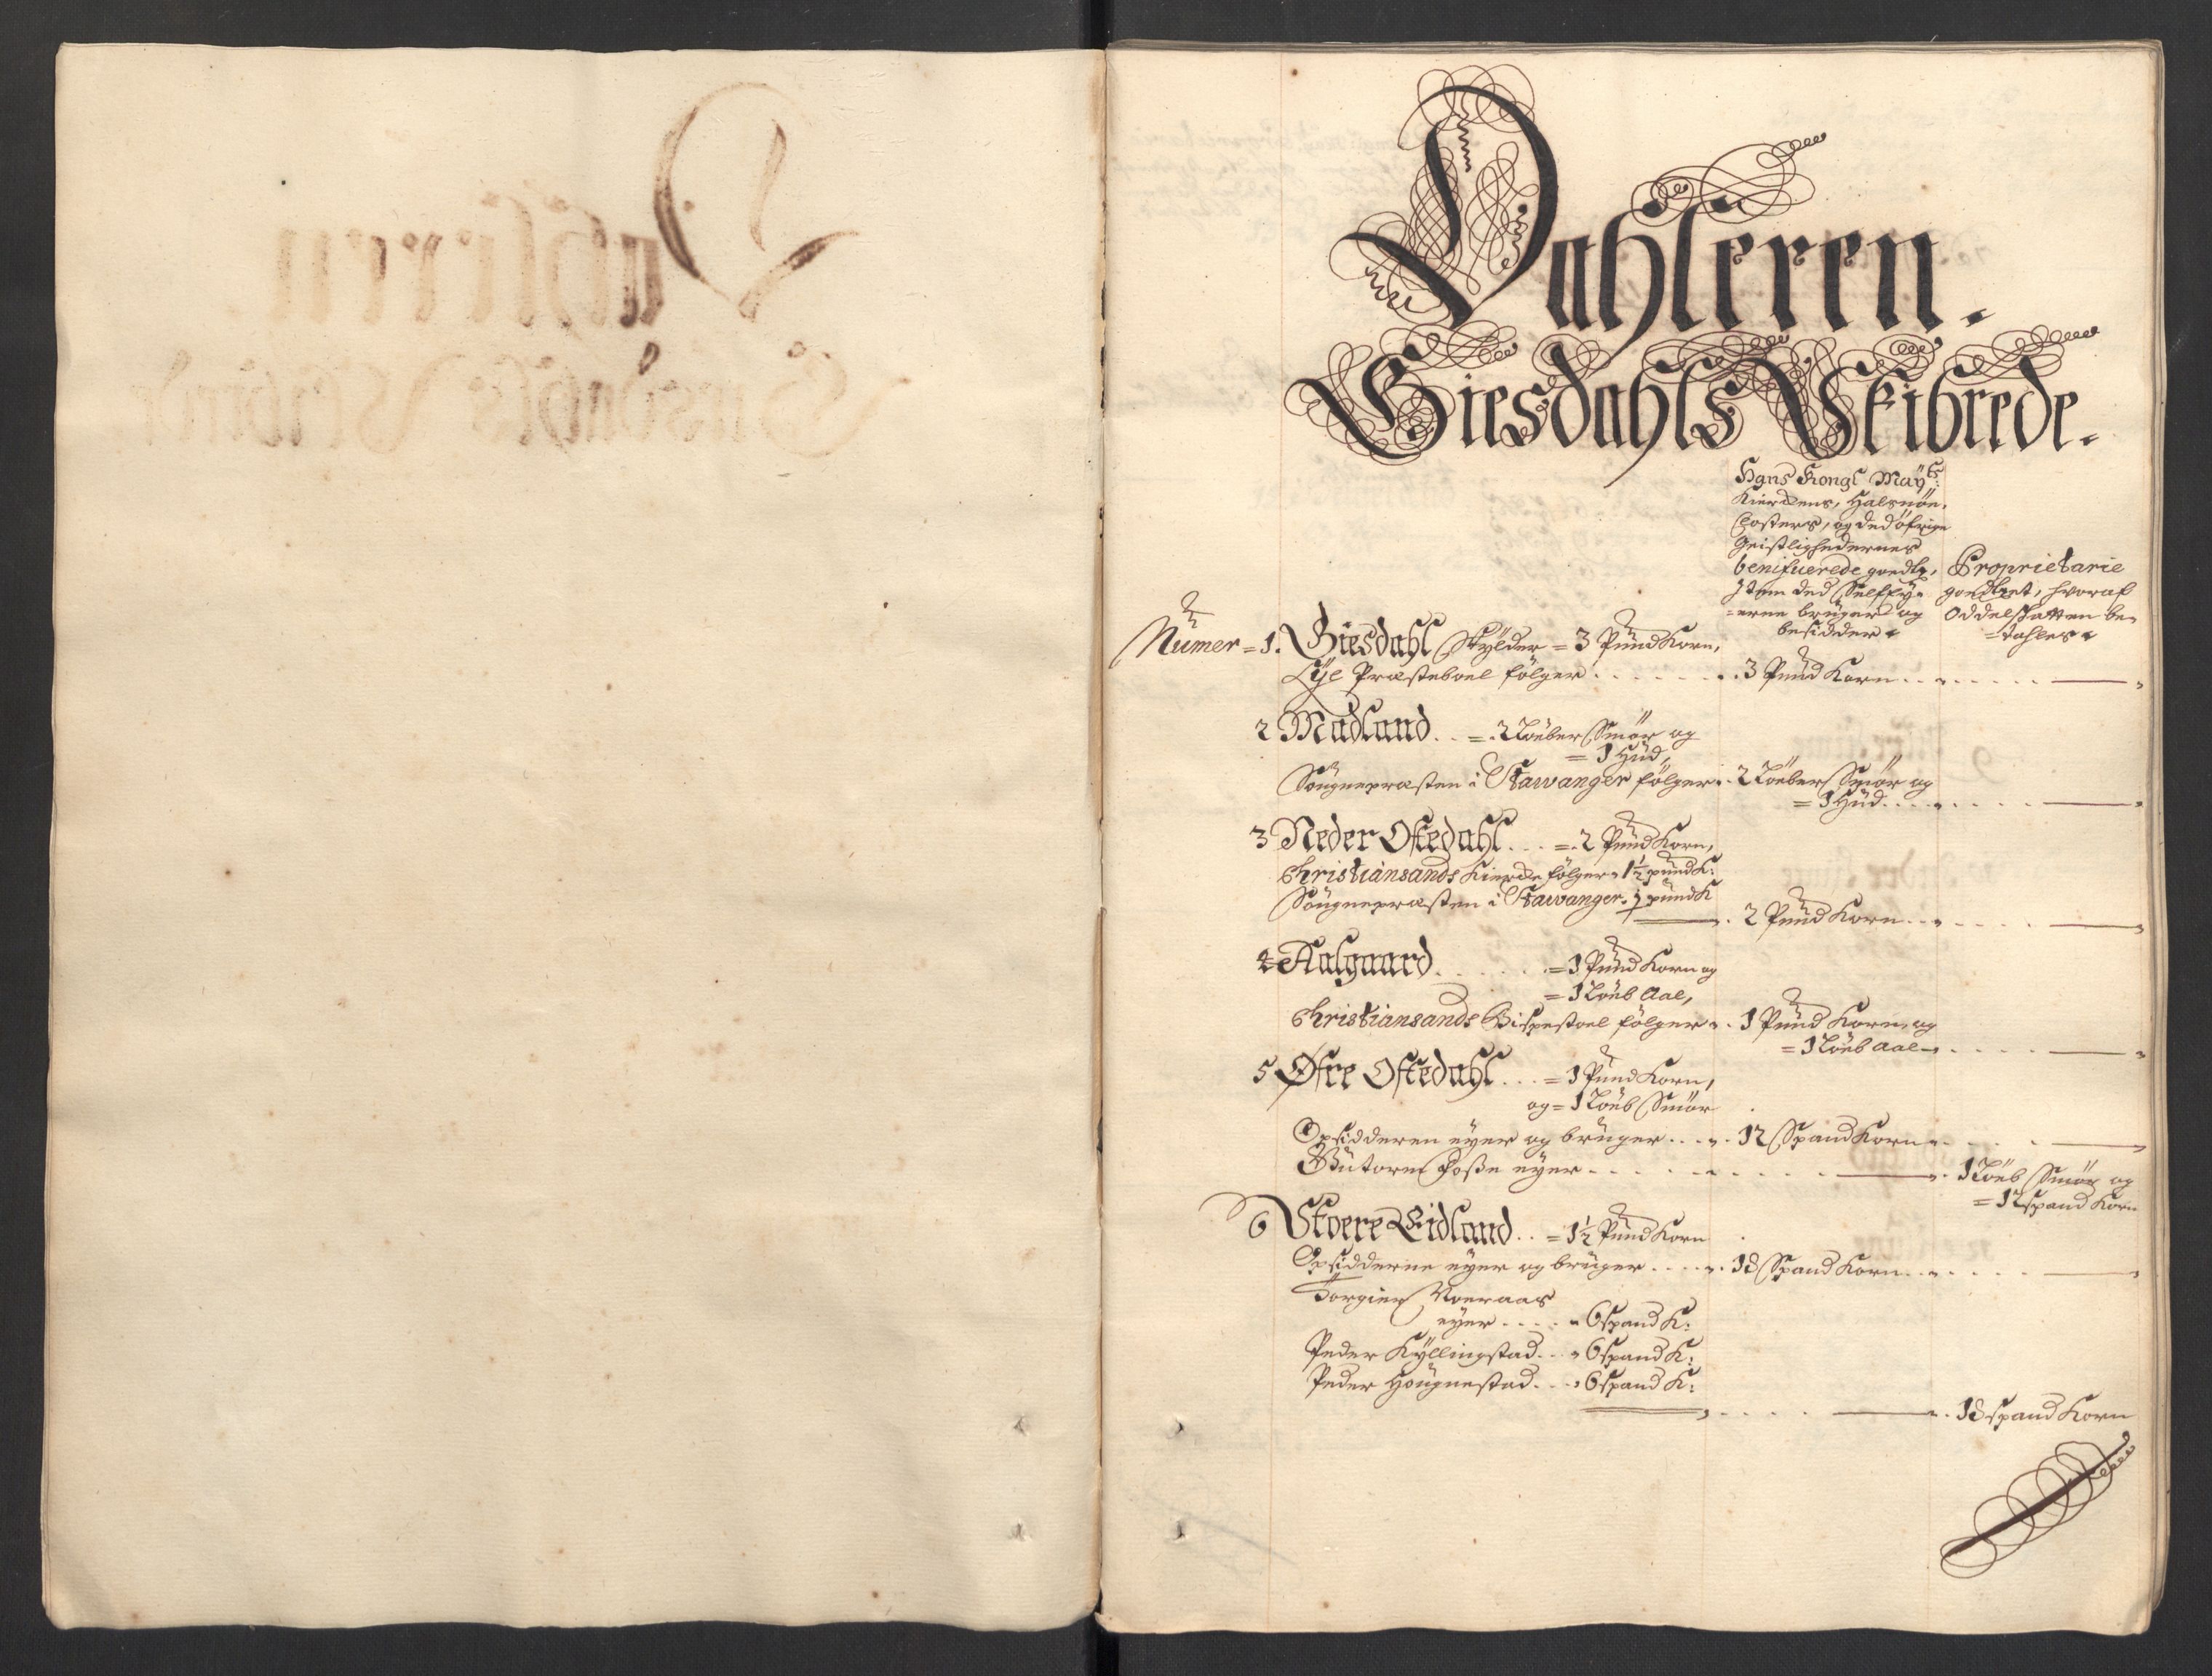 Dahleren.
Giesdahls Skibrede.
Hans Kongl May.ts
Kierkens, Halsnöe,
Closters, og ded öfrige
Geistlighedernes
benificerede goedtz,
Item ded Selffey=
=erne brüger og
besidder
Proprietarie
goedtzet, hvoraf
Oddelskatten be=
=tahles
Numer = 1. Giesdahl Skÿlder = 3 Pund Korn,
Lÿe Præsteboel fölger . . . . . . . . 3 Pund Korn . . . . . .
2 Madland . . = 2 Löeber Smör og
= 1 Hud,
Sougnepræsten i Stawanger fölger . 2 Löeber Smör og
= 1 Hud . . . . . . . .
3 Neder Oftedahl . . . = 2 Pund Korn,
Christiansands Kierke fölger 1½ pund K:
Sougnepræsten i Stawanger ½ pund K
2 Pund Korn . . . . . .
4 Aalgaard . . . . . . = 1 Pund Korn og
= 1 Löeb Aal,
Christiansands Bispestoel fölger . 1 Pund Korn, og
= 1 Löeb aal . . . . .
5 Øfre Oftedahl . . . = 1 Pund Korn,
og = 1 Löeb Smör
Opsidderen eÿer og brüger . . . . 12 Spand Korn . . . .
Gutorm Fosse eÿer . . . . . . . . . 1 Löeb Smör og
= 12 spand Korn
6 Stoere Eidland . . = 1½ Pund Korn
Opsidderne eÿer og brüger . . . . . 18 Spand Korn . . . . .
Torgier Roeraas
eÿer . . . . 6 spand K:
Peder Kÿllingstad . . . 6 spand K:
Peder Hougnestad . . . 6 spand K:
. . . . . . 18 spand Korn